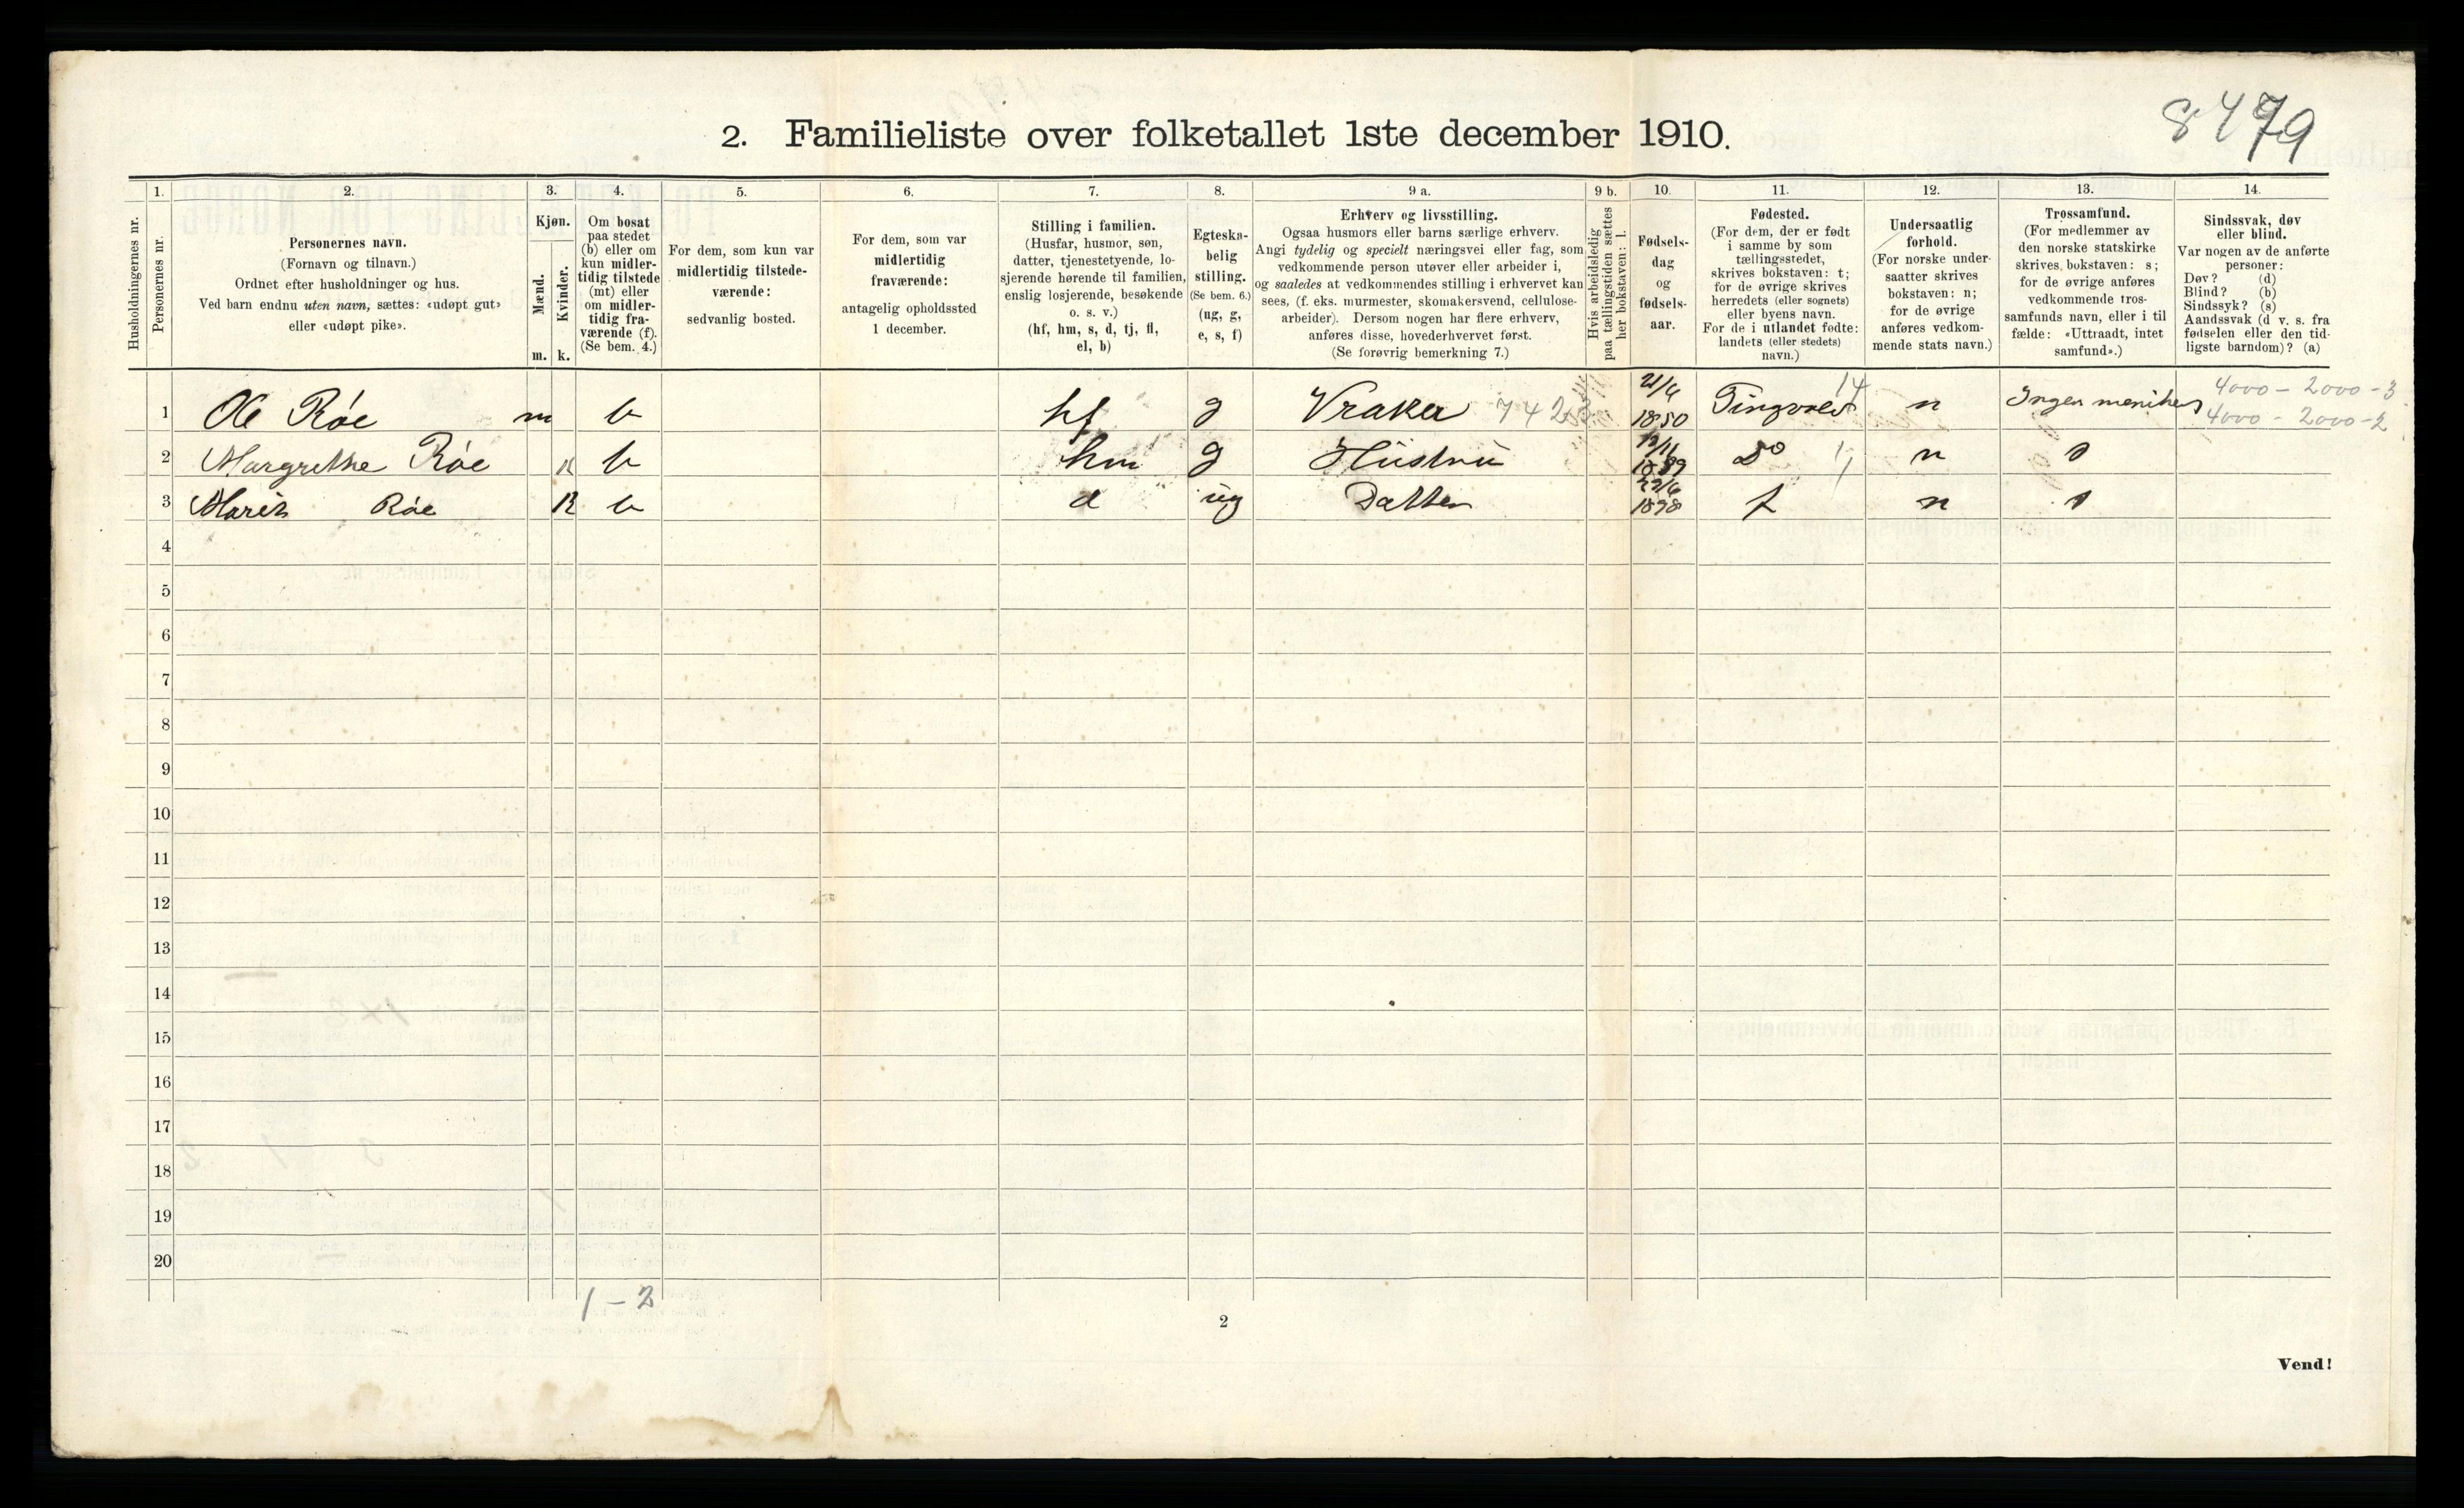 8479
2. Familieliste over folketallet 1ste december 1910.
Husholdningernes nr.
1.
Personernes nr.
2.
Personernes navn.
(Fornavn og tilnavn.)
Ordnet efter husholdninger og hus.
Ved barn endnu uten navn, sættes: «udøpt gut»
eller «udøpt pike».
3.
Kjøn.
Mænd.
Kvinder.
m. k.
4.
Om bosat
paa stedet
(b) eller om
kun midler-
tidig tilstede
(mt) eller
om midler-
tidig fra-
værende (f).
(Se bem. 4.)
5.
For dem, som kun var
midlertidig tilstede-
værende:
sedvanlig bosted.
6.
For dem, som var
midlertidig
fraværende:
antagelig opholdssted
1 december.
7.
Stilling i familien.
(Husfar, husmor, søn,
datter, tjenestetyende, lo-
sjerende hørende til familien,
enslig losjerende, besøkende
o. s. v.)
(hf, hm, s, d, tj, fl,
el, b)
8.
Egteska-
belig
stilling.
(Se bem. 6.)
(ug, g,
e, s, f)
9 a.
Erhverv og livsstilling.
Ogsaa husmors eller barns særlige erhverv.
Angi tydelig og specielt næringsvei eller fag, som
vedkommende person utøver eller arbeider i,
og saaledes at vedkommendes stilling i erhvervet kan
sees, (f. eks. murmester, skomakersvend, cellulose-
arbeider). Dersom nogen har flere erhverv,
anføres disse, hovederhvervet først.
(Se forøvrig bemerkning 7.)
9 b.
Hvis arbeidsledig
paa tællingstiden sættes
her bokstaven: l.
10.
Fødsels-
dag
og
fødsels-
aar.
11.
Fødested.
(For dem, der er født
i samme by som
tællingsstedet,
skrives bokstaven: t;
for de øvrige skrives
herredets (eller sognets)
eller byens navn.
For de i utlandet fødte:
landets (eller stedets)
navn.)
12.
Undersaatlig
forhold.
(For norske under-
saatter skrives
bokstaven: n;
for de øvrige
anføres vedkom-
mende stats navn.)
13.
Trossamfund.
(For medlemmer av
den norske statskirke
skrives bokstaven: s;
for de øvrige anføres
vedkommende tros-
samfunds navn, eller i til
fælde: «Uttraadt, intet
samfund».)
14.
Sindssvak, døv
eller blind.
Var nogen av de anførte
personer:
Døv? (d)
Blind? (b)
Sindssyk? (s)
Aandssvak (d v. s. fra
fødselen eller den tid-
ligste barndom)? (a)
1 Ole Røe m b hf g Vraker 1850 Tingvold 14 n Ingen 4000 - 2000 - 3
4000 - 2000 - 2
2 Margrethe Røe k b hm g Hustru Do n s
3 Marit Røe k b d ug Datter 1898 t n s
4
5
6
7
8
9
10
11
12
13
14
15
16
17
18
19
20
1 - 2
2
Vend!